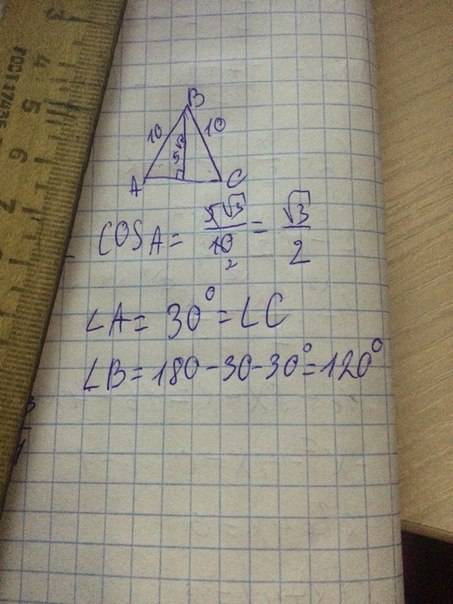 3 4 5 6 7
ГОСТ 17435
B
10 5√3 10
A C
COS A = 5√3/10 2 = √3/2
∠A = 30° = ∠C
∠B = 180 - 30 - 30° = 120°